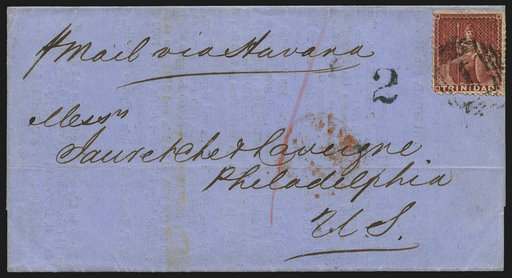 p Mail via Havana
TRINIDAD
2
Messrs
Lauretche & Lavigne
Philadelphia
U S.